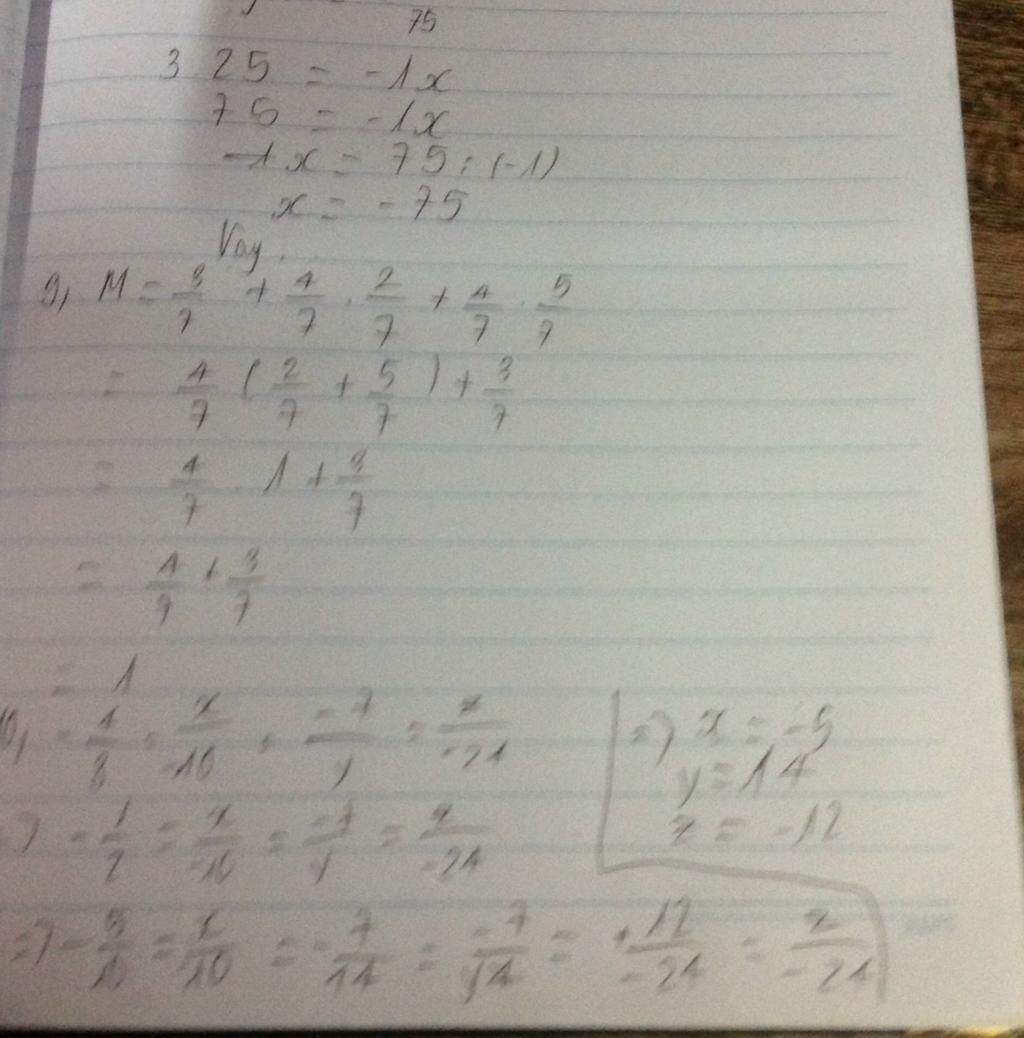 75
3 25 = -1x
75 = -1x
-1x = 75 : (-1)
x = -75
Vay.
9, M = 3/7 + 4/7 . 2/7 + 4/7 . 5/7
= 4/7 ( 2/7 + 5/7 ) + 3/7
= 4/7 . 1 + 3/7
= 4/7 + 3/7
= 1
10, -4/8 = x/-10 = -7/y = z/-24
=> -1/2 = x/-10 = -7/y = z/-24
=> -5/10 = x/10 = -7/14 = -7/y4 = +12/-24 = z/-24
=> x = -5
y = 14
z = -12